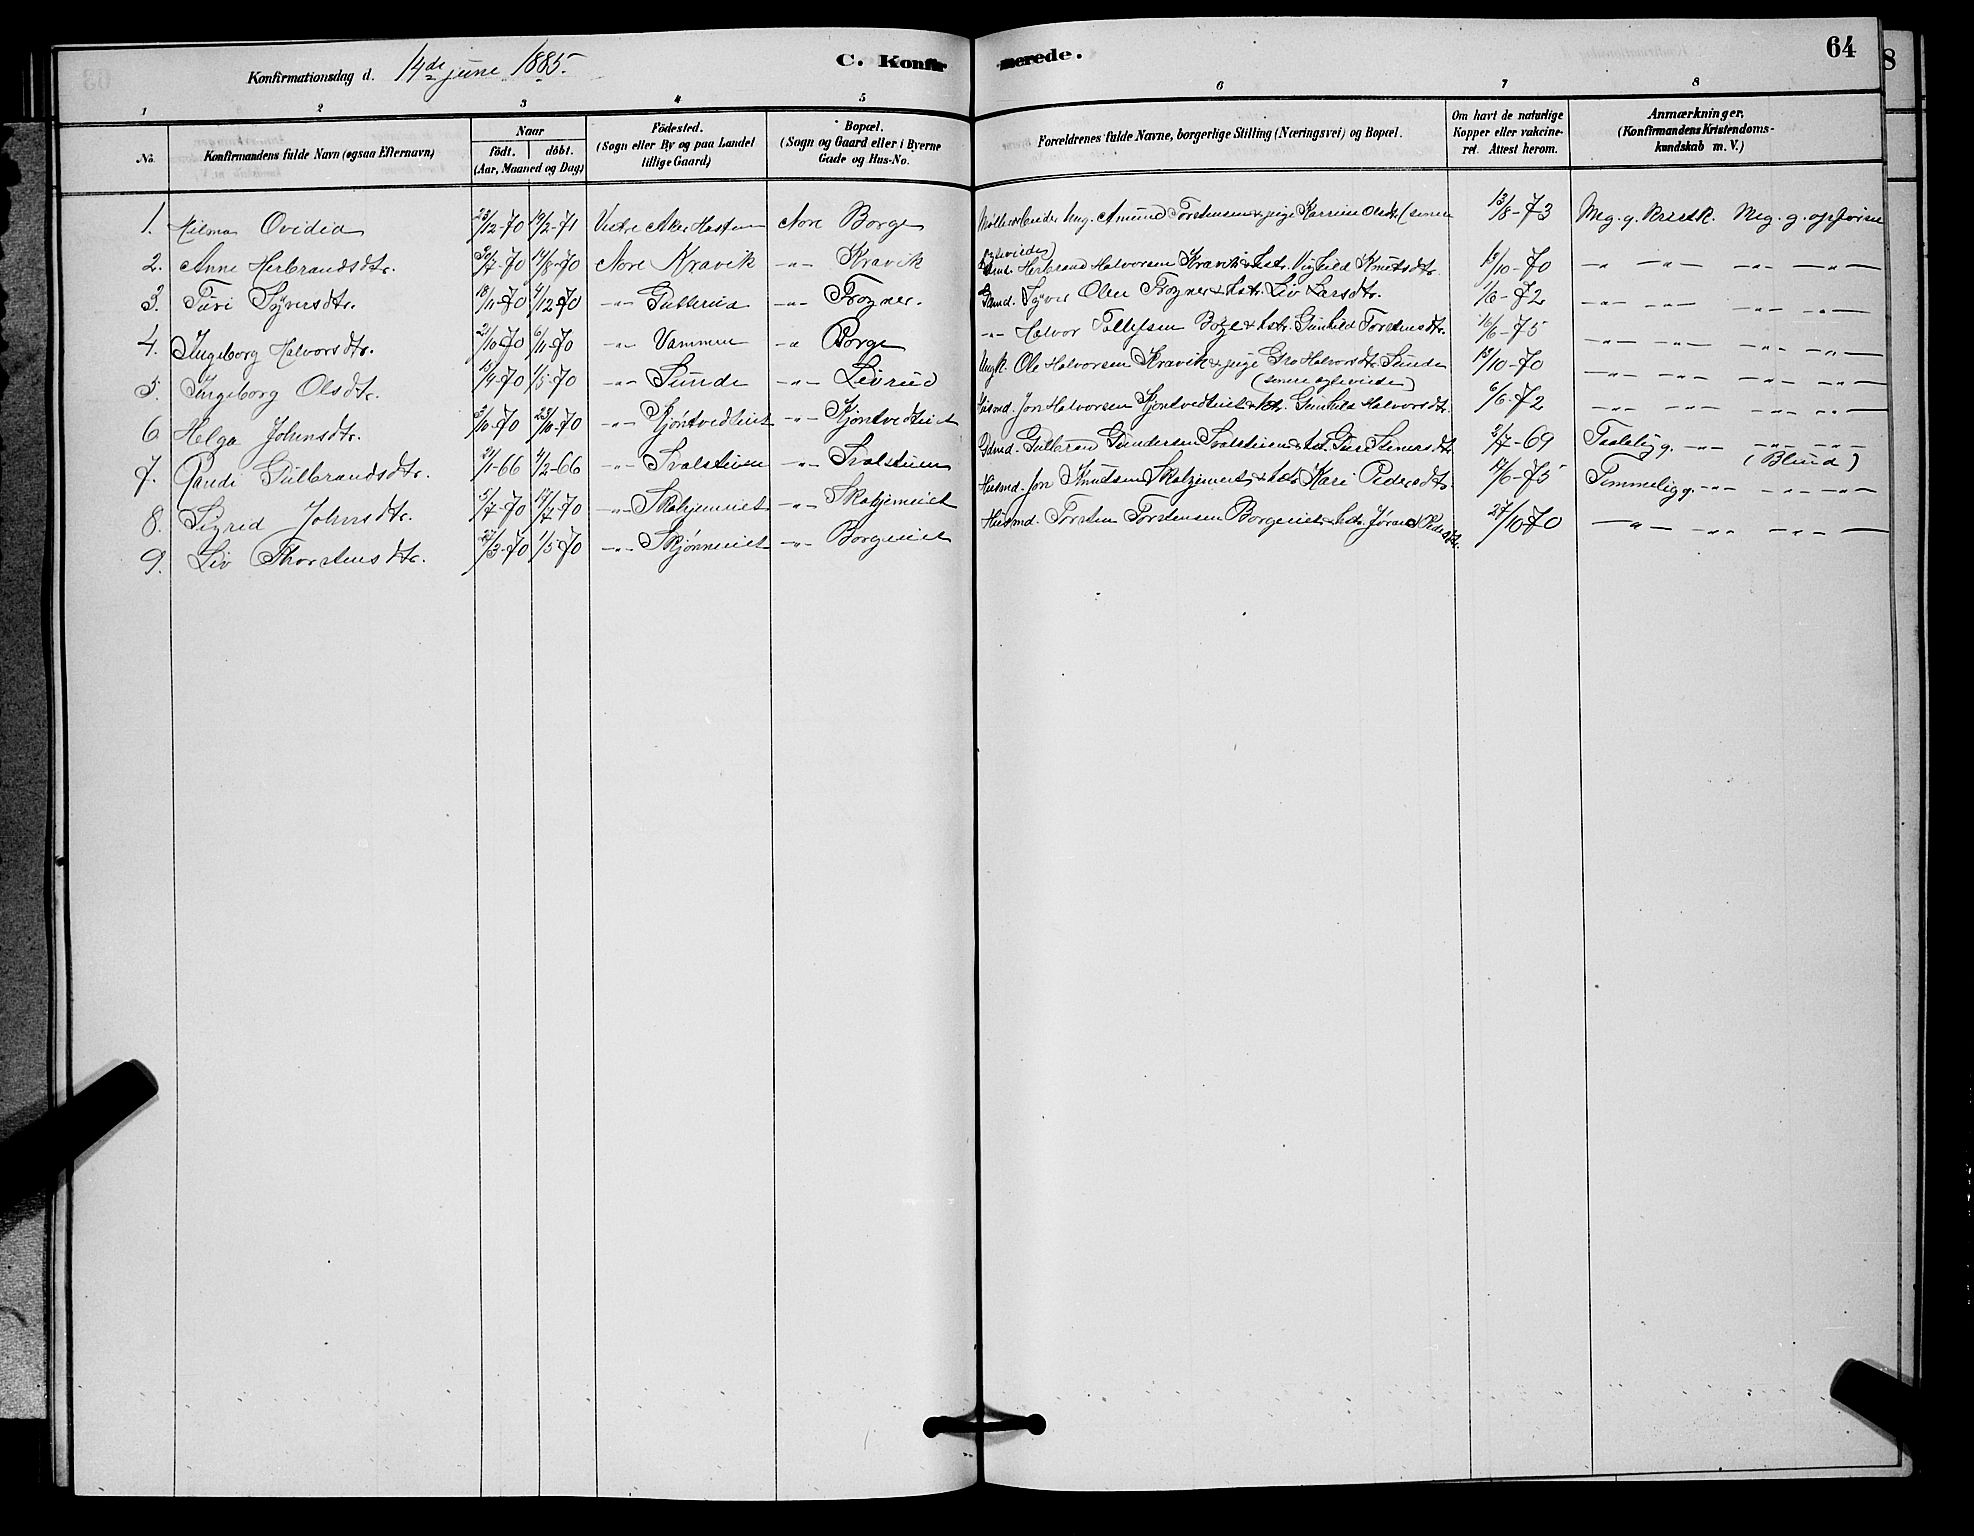 Konfirmationsdag d. 14de june 1885.
C. Konfirmerede.
64
8
1 2 3 4 5 6 7 8
No.
Konfirmandens fulde Navn (ogsaa Efternavn)
Naar
født. døbt.
(Aar, Maaned og Dag)
Fødested.
(Sogn eller By og paa Landet
tillige Gaard)
Bopæl.
(Sogn og Gaard eller i Byerne
Gade og Hus-No.
Forældrenes fulde Navne, borgerlige Stilling (Næringsvei) og Bopæl.
Om havt de naturlige
Kopper eller vakcine-
ret. Attest herom.
Anmærkninger,
(Konfirmandens Kristendoms-
kundskab m. V.)
1. Hilma Ovidia 23/12-70 19/2-71 Vestre Aker Nore Borge Ung. Amund Torstensen & pige Karrine Olsdtr. (senere 13/8-73 Meg. g. Kristk. Meg. g. opførse
egteviede)
2. Anne Herbrandsdtr. 30/7-70 14/8-70 Nore Kravik -"- Kravik Herbrand Halvorsen Kravik & hstr. Vighild Knutsdtr. 13/10-70 -"- -"- -"- -"-
3. Turi Syversdtr. 18/11-70 4/12-70 -"- Gulterud -"- Frogner. Gamd. Syver Olen Frogner & hstr. Liv Larsdtr. 1/6-72 -"- -"- -"- -"-
4. Ingeborg Halvorsdtr. 21/10-70 6/11-70 -"- Vammen -"- Borge -"- Halvor Tollefsen Borge & hstr. Gunhild Torstensdtr. 16/6-75 -"- -"- -"- -"-
5. Ingeborg Olsdtr. 13/4-70 1/5-70 -"- Sunde -"- Livrud Ungk. Ole Halvorsen Kravik & pige Gro Halvorsdtr. Sunde 13/10-70 -"- -"- -"- -"-
(senere egteviede)
6 Helga Johnsdtr. 3/10-70 23/10-70 -"- Kjøntvedteiet -"- Kjøntvedteiet Husmd. Jon Halvorsen Kjøntvedteiet & hstr. Gunhild Halvorsdtr. 6/6-72 -"- -"- -"- -"-
7. Randi Gulbrandsdtr. 21/1-66 4/2-66 -"- Svalstuen -"- Svalstuen Gdmd. Gulbrand Gundersen Svalstuen & hst. Guri Stenersdtr. 2/7-69 Taalelig g. -"- -"- -"-
(Blind)
8. Sigrid Johnsdtr. 5/7-70 17/7-70 -"- Skatjemeiet -"- Skatjemeiet Husmd. Jon Knutsen Skatjemeiet & hstr. Kari Pedersdtr. 17/6-75 Temmelig g. -"- -"- -"-
9. Liv Thorstensdtr. 27/3-70 1/5-70 -"- Skjønneiet -"- Borgeeiet Husmd. Torsten Torstensen Borgeeiet & hstr. Jørand Pedersdtr. 27/10-70 -"- -"- -"- -"-